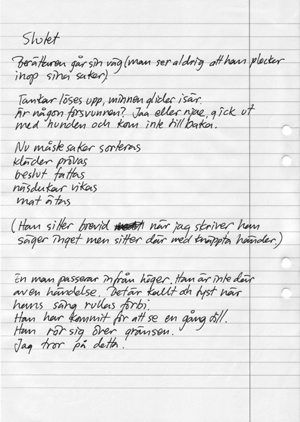 Slutet
Berättaren går sin väg (man ser aldrig att han plockar
ihop sina saker)
Tankar löses upp, minnen glider isär.
Är någon försvunnen? Jaa eller njae, gick ut
med hunden och kom inte tillbaka.
Nu måste saker sorteras
kläder prövas
beslut fattas
näsdukar vikas
mat ätas
(Han sitter bredvid när jag skriver, han
säger inget men sitter där med knäppta händer.)
En man passerar infrån höger. Han är inte där
av en händelse. Det är kallt och tyst när
hans säng rullas förbi.
Han har kommit för att se en gång till.
Han rör sig över gränsen.
Jag tror på detta!